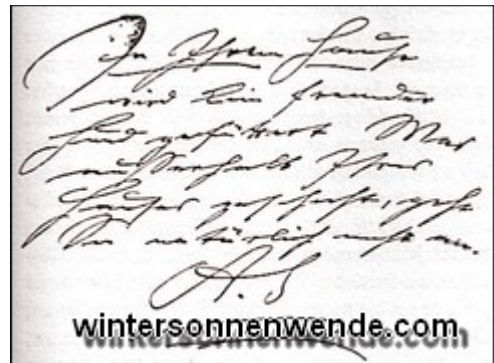 In Ihrem Hause
wird kein fremder
Hund gefüttert. Was
ausserhalb Ihres
Hauses geschieht, geht
Sie natürlich nichts an.
A. S
wintersonnenwende.com